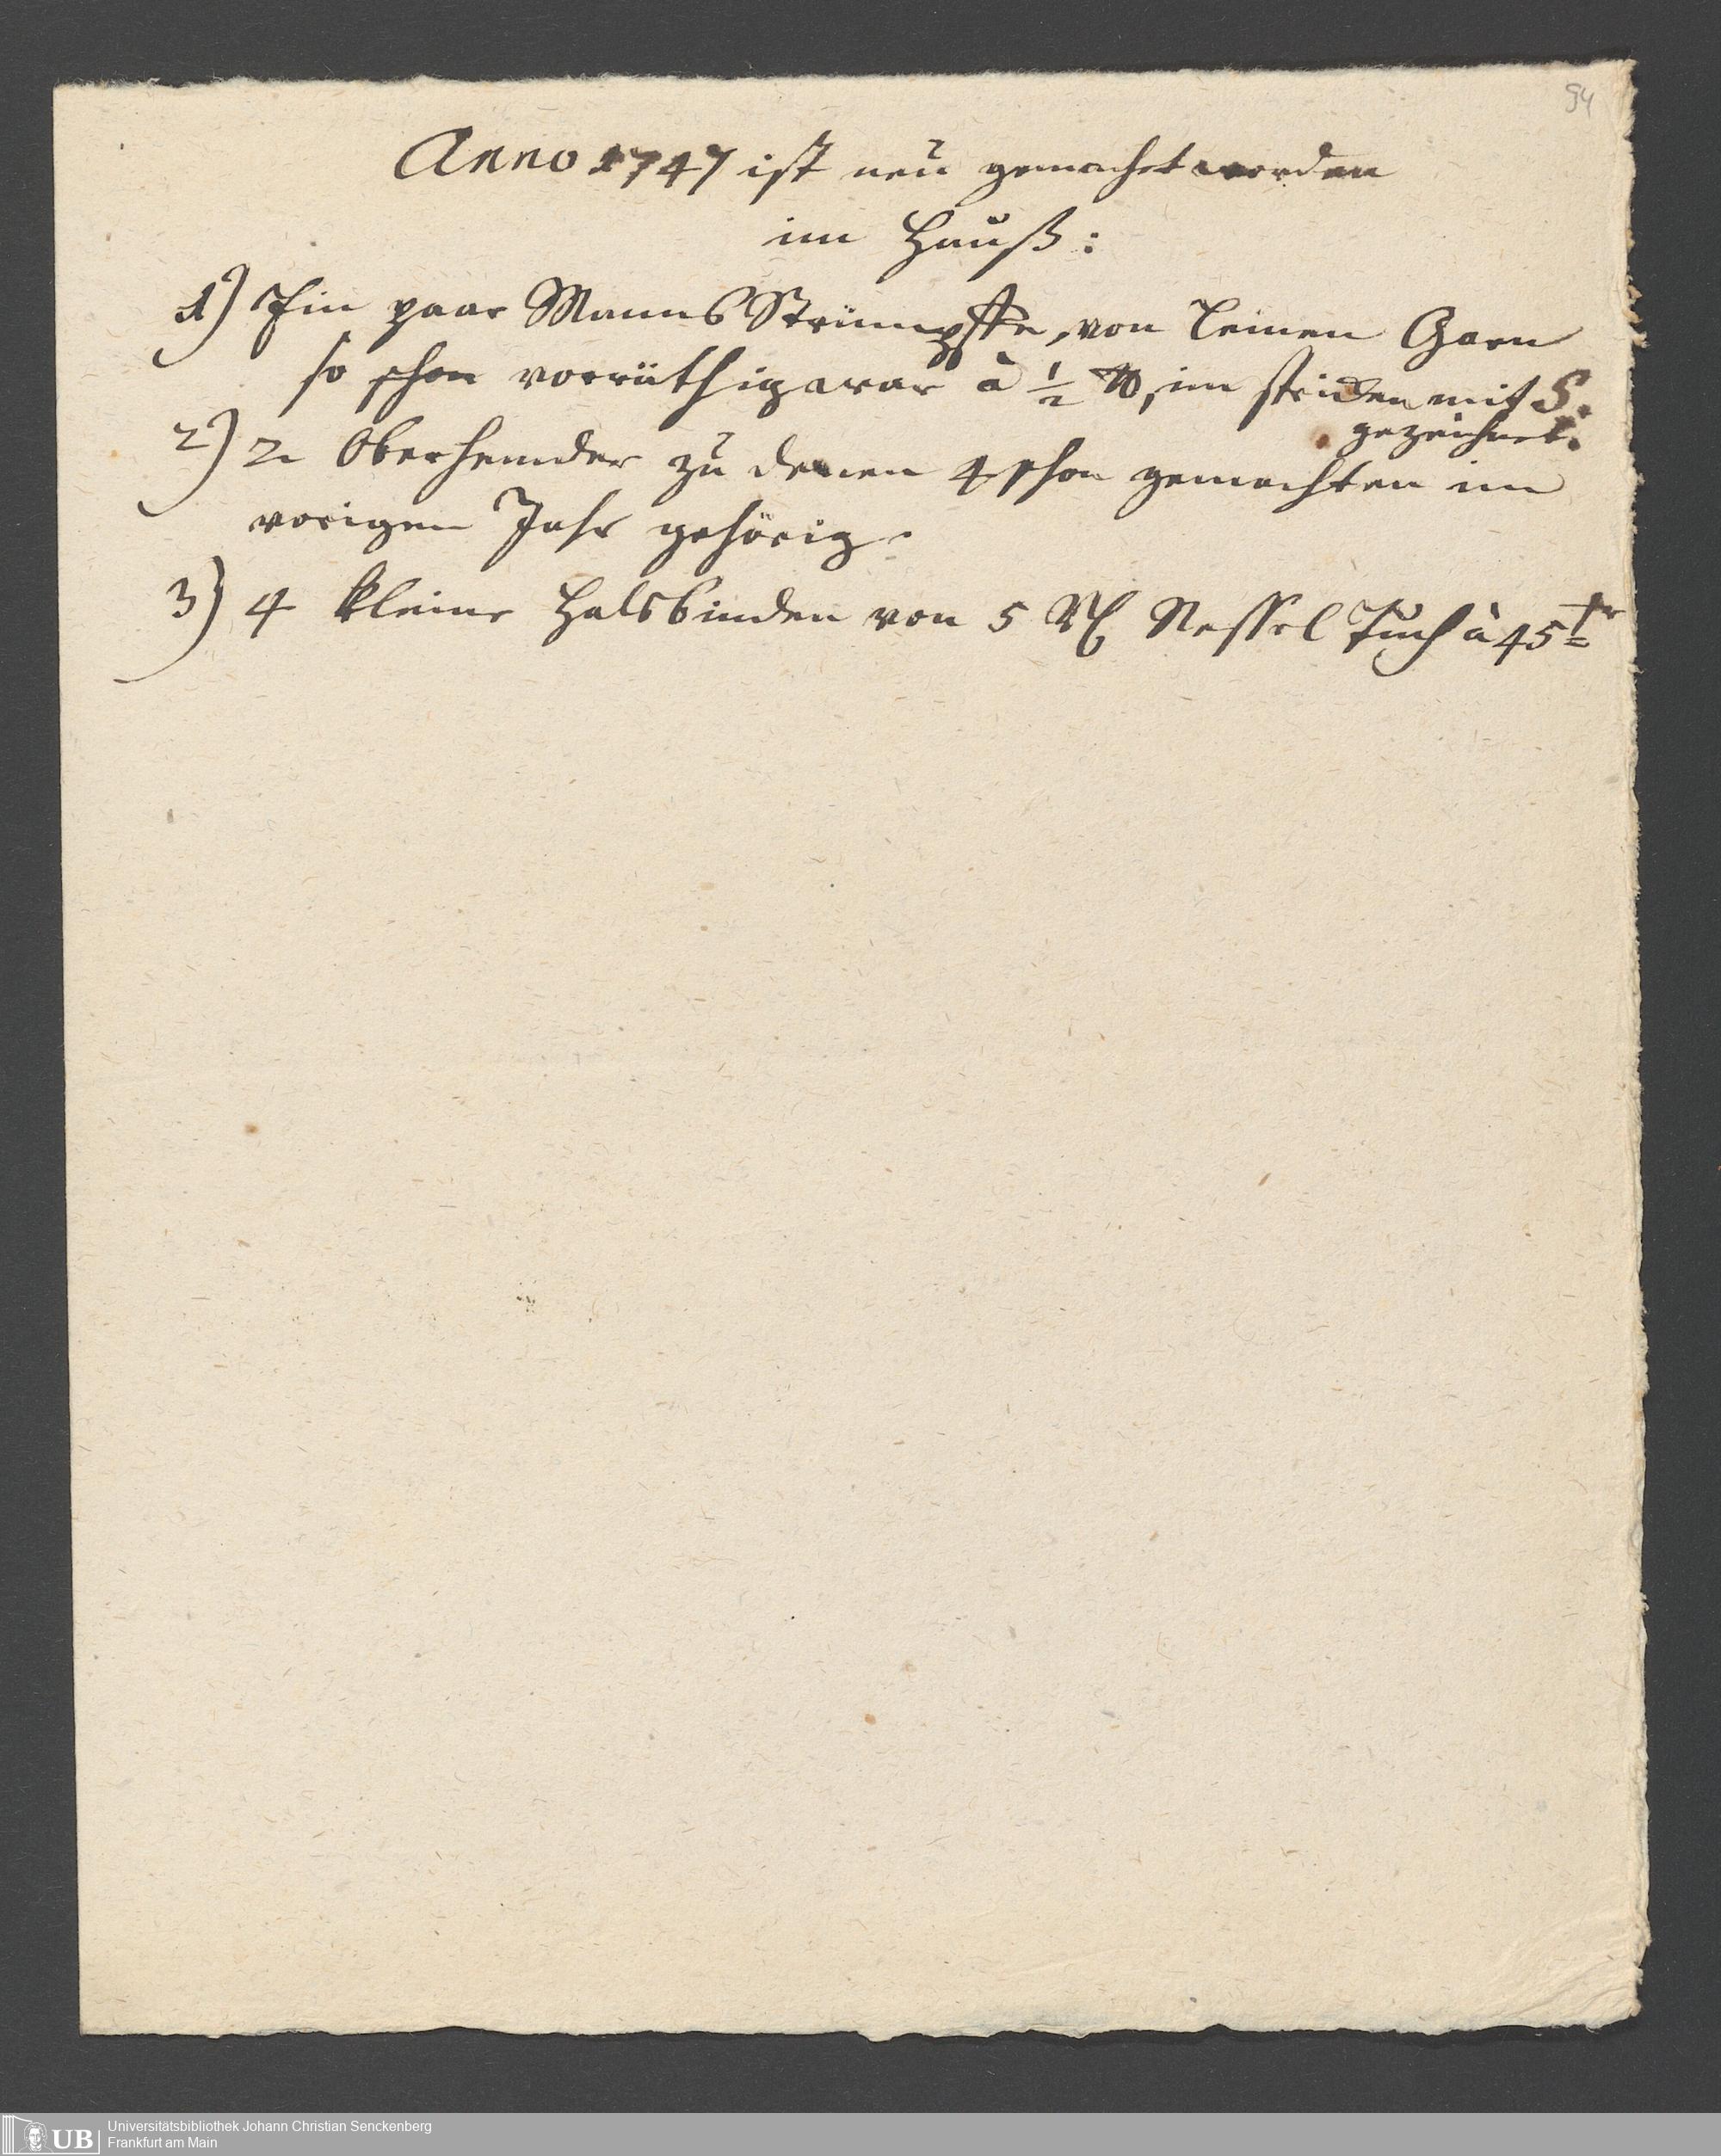 94
Anno 1747 ist neü gemachet worden
im Hauß:
1) Ein paar Manns Strümpffe, von leinen Garn
so schon vorräthig war à 1/2 ℔, im stricken mit S.
gezeichnet.
2) 2 Oberhemder zu denen 4 schon gemachten im
vorigen Jahr gehörig.
3) 4 kleine Halsbinden von 5 Nessel Tuch à 45
UB
Universitätsbibliothek Johann Christian Senckenberg
Frankfurt am Main